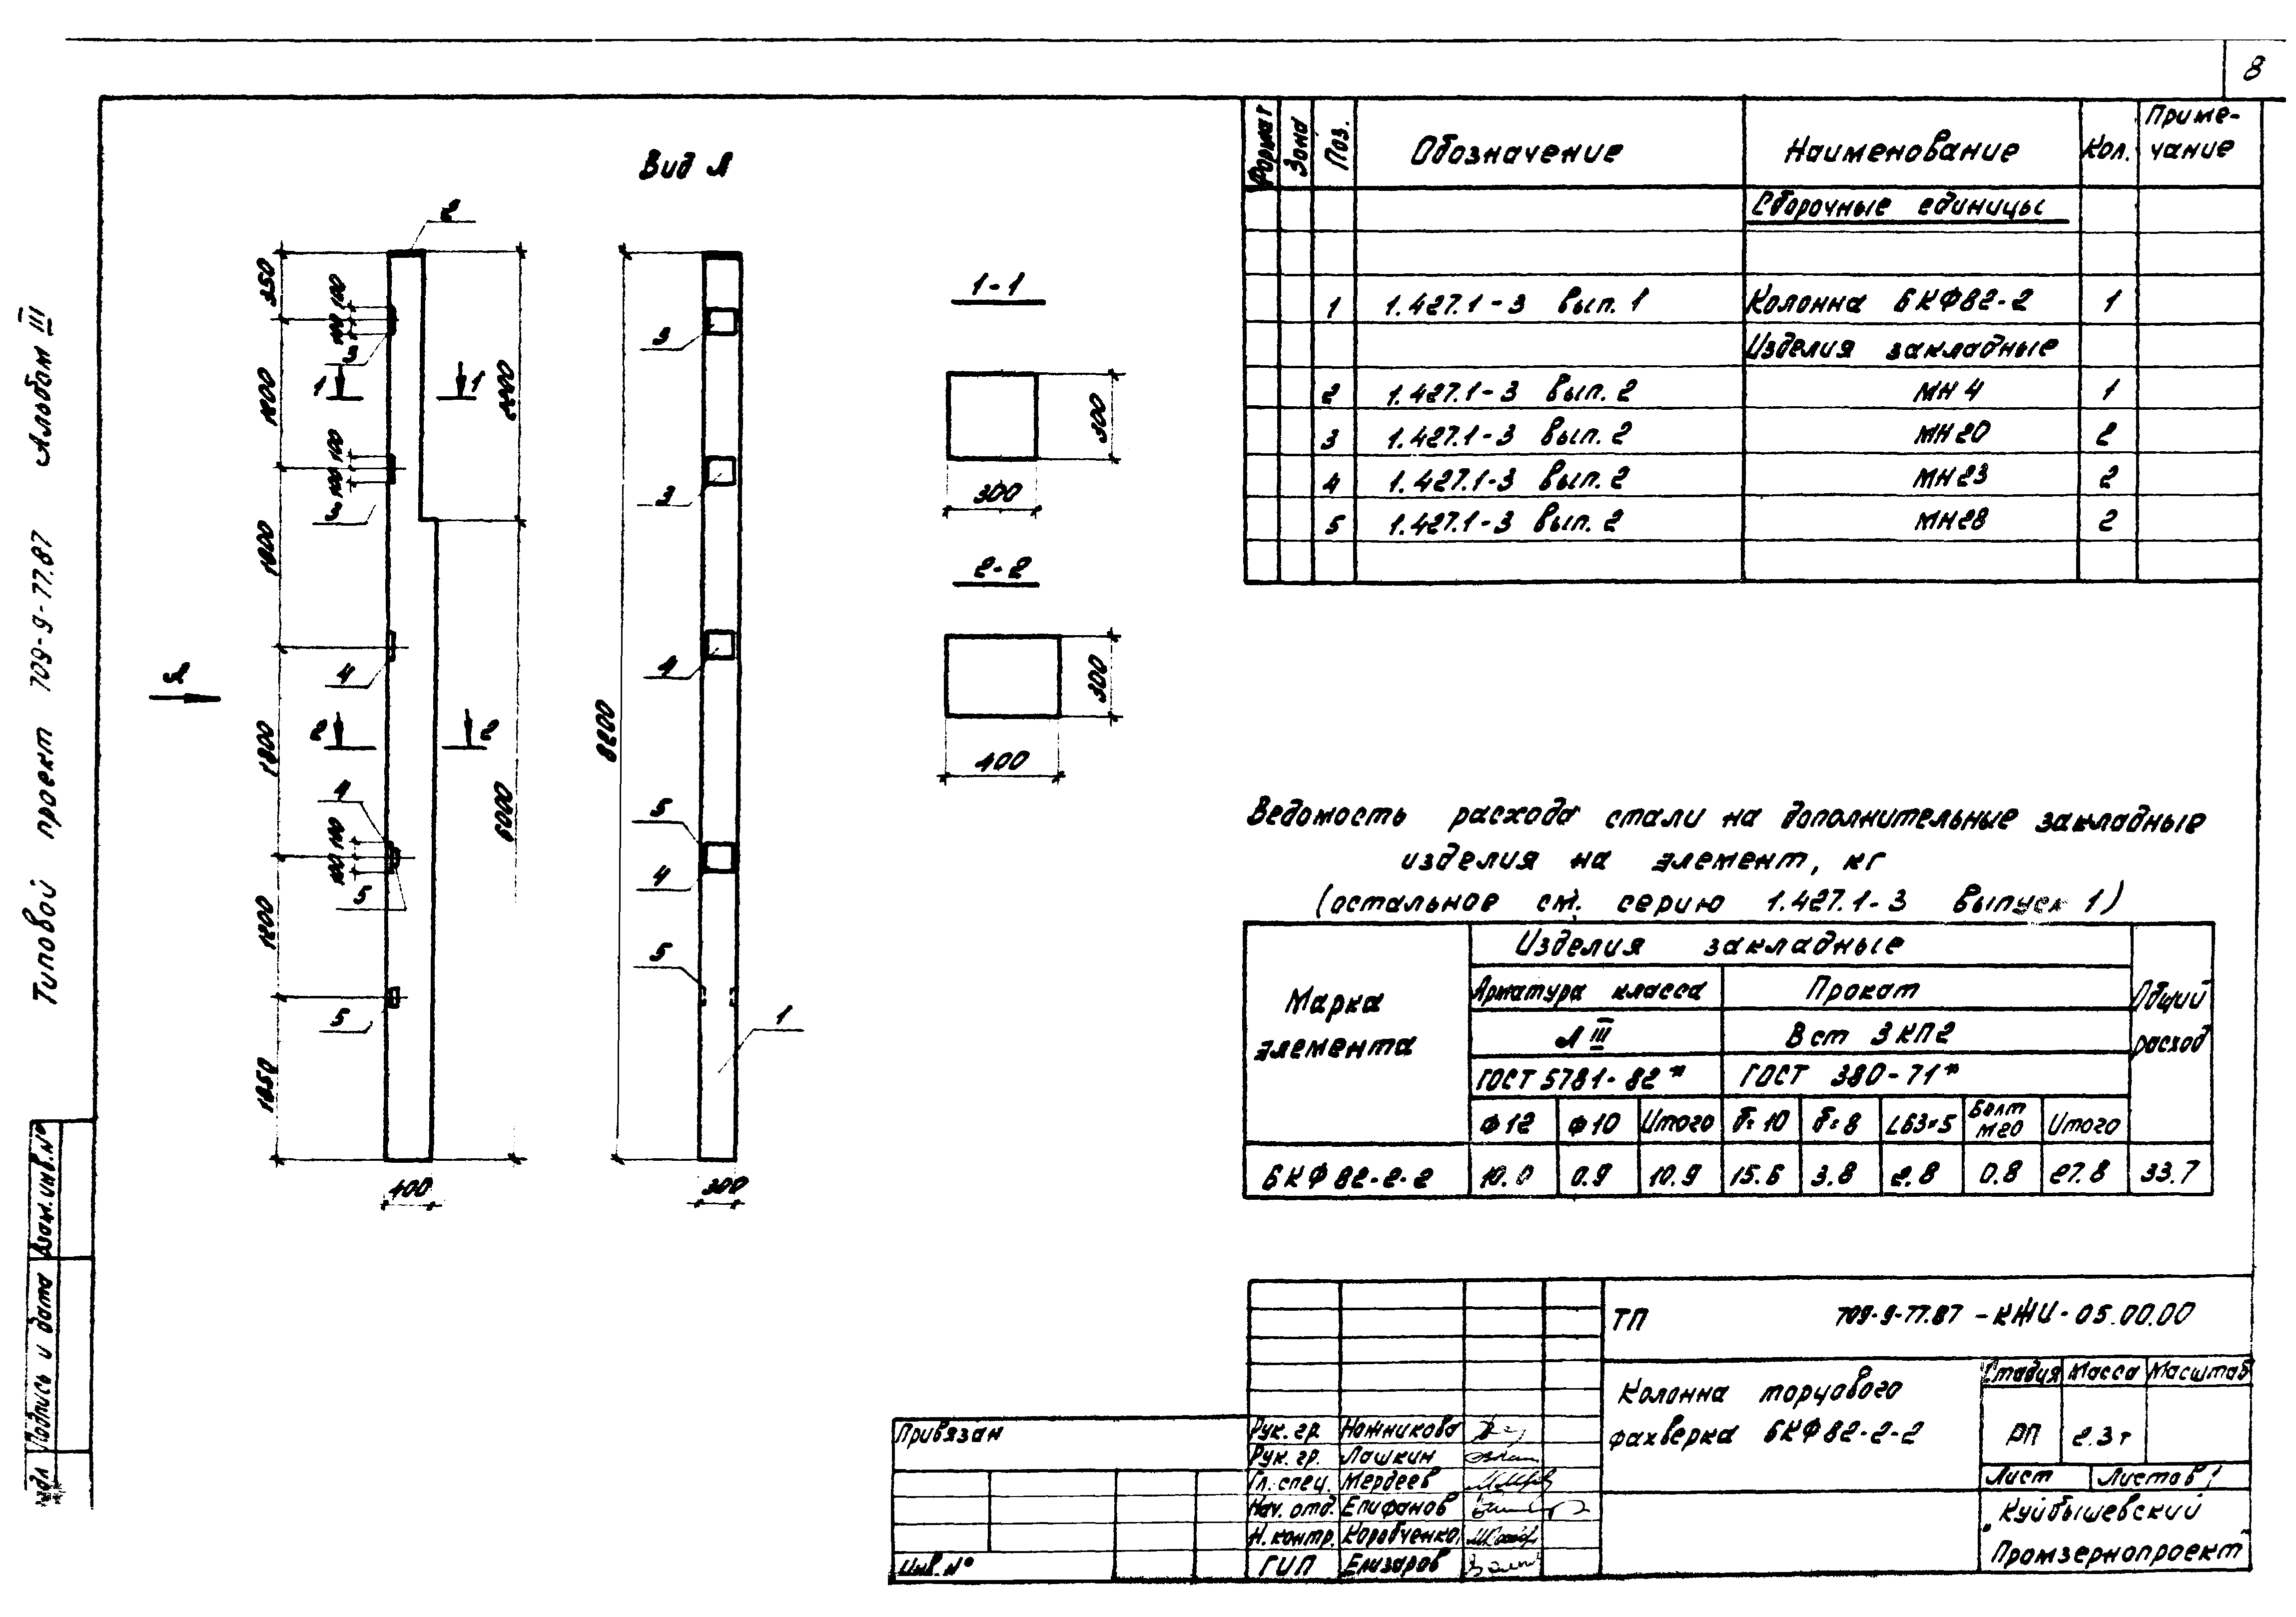 8
Типовой проект 709-9-77.87 Альбом III
Взам.инв.№
Подпись и дата
Вид А
2
350
100
100
3
1
1
2200
100
100
3
1800
4
А
2
2
1800
4
100
100
5
6000
1200
5
1850
400
3
3
4
8200
5
4
5
1
300
1-1
300
300
2-2
300
400
Формат Зона Поз. Обозначение Наименование Кол. Приме-
чание
Сборочные единицы
1 1.427.1-3 вып. 1 Колонна БКФ82-2 1
Изделия закладные
2 1.427.1-3 вып. 2 МН 4 1
3 1.427.1-3 вып. 2 МН20 2
4 1.427.1-3 вып. 2 МН23 2
5 1.427.1-3 вып. 2 МН28 2
Ведомость расхода стали на дополнительные закладные
изделия на элемент, кг
(остальное см. серию 1.427.1-3 выпуск 1)
Марка
элемента
Изделия закладные
Общий
расход
Арматура класса Прокат
А III В ст 3 КП2
ГОСТ 5781-82* ГОСТ 380-71*
Ф12 Ф10 Итого δ=10 δ=8 L63×5 Болт
М20 Итого
БКФ 82-2-2 10.0 0.9 10.9 15.6 3.8 2.8 0.8 27.8 33.7
ТП 709-9-77.87 -КЖИ-05.00.00
Колонна торцового
фахверка БКФ82-2-2
Стадия Масса Масштаб
РП 2.3 т
Лист Листов 1
Куйбышевский
Промзернопроект
Привязан
Инв.№
Рук. гр. Ножникова
Рук. гр. Лашкин
Гл. спец. Мердеев
Нач. отд. Епифанов
Н. контр. Коробченко
ГИП Елизаров